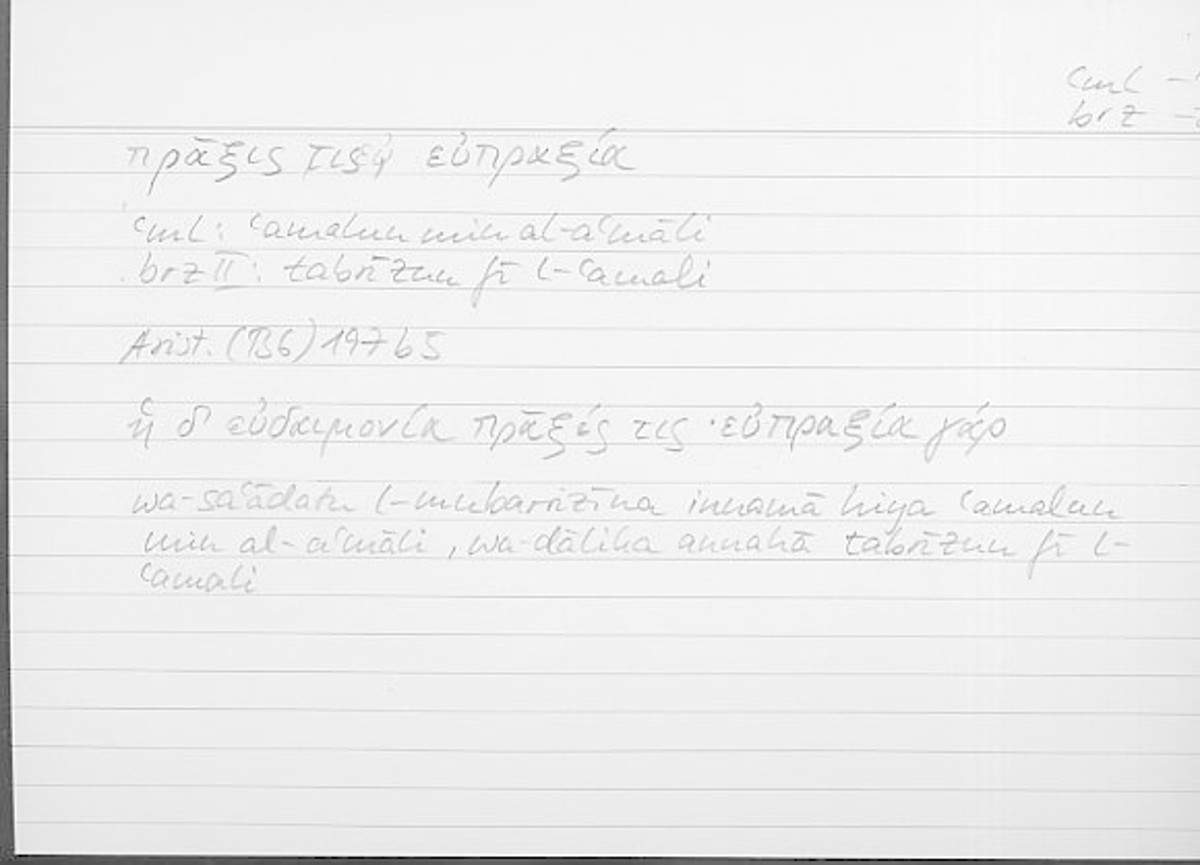 ʿml –
brz –
πρᾶξις τις εὐπραξία
ʿml: ʿamalun min al-aʿmāli
brz II: tabrīzun fī l-ʿamali
Arist. (Γ36) 197 b5
ἡ δ' εὐδαιμονία πρᾶξίς τις · εὐπραξία γάρ
wa-saʿādatu l-mubarrizīna innamā hiya ʿamalun
min al-aʿmāli, wa-dālika annahā tabrīzun fī l-
ʿamali